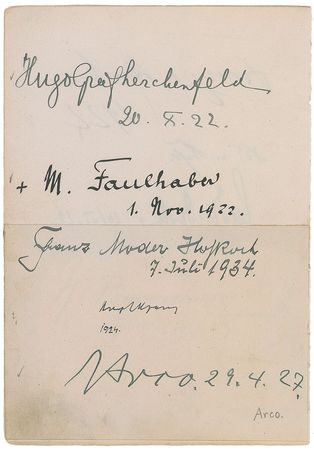 Hugo Graf Lerchenfeld
20. X. 22.
+ M. Faulhaber
1. Nov. 1922.
Franz Moder Hofkoch
7. Juli 1934.
1924.
Arco. 29. 4. 27
Arco.